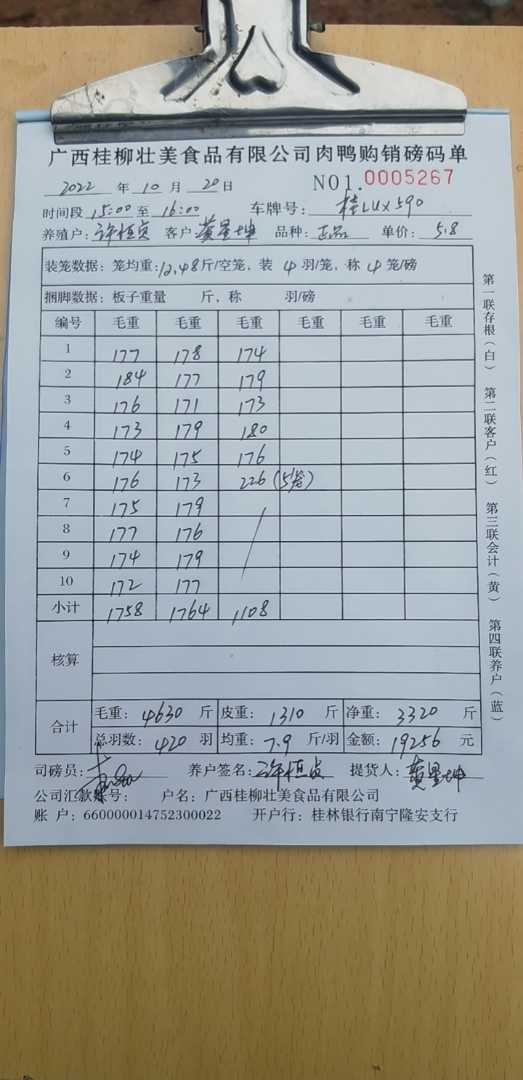 广西桂柳壮美食品有限公司肉鸭购销磅码单
2022 年 10 月 20 日 NO1.0005267
时间段 15:00 至 16:00 车牌号: 桂LUX590
养殖户: 许恒贞 客户: 黄星坤 品种: 正品 单价: 5.8
装笼数据: 笼均重: 12.48 斤/空笼, 装 4 羽/笼, 称 4 笼/磅
捆脚数据: 板子重量 斤, 称 羽/磅
编号 毛重 毛重 毛重 毛重 毛重 毛重
1 177 178 174
2 184 177 179
3 176 171 173
4 173 179 180
5 174 175 176
6 176 173 226 (5笼)
7 175 179
8 177 176
9 174 179
10 172 177
小计 1758 1764 1108
核算
合计 毛重: 4630 斤 皮重: 1310 斤 净重: 3320 斤
总羽数: 420 羽 均重: 7.9 斤/羽 金额: 19256 元
司磅员: 养户签名: 许恒贞 提货人: 黄星坤
公司汇款账号: 户名: 广西桂柳壮美食品有限公司
账 户: 660000014752300022 开户行: 桂林银行南宁隆安支行
第一联存根(白) 第二联客户(红) 第三联会计(黄) 第四联养户(蓝)